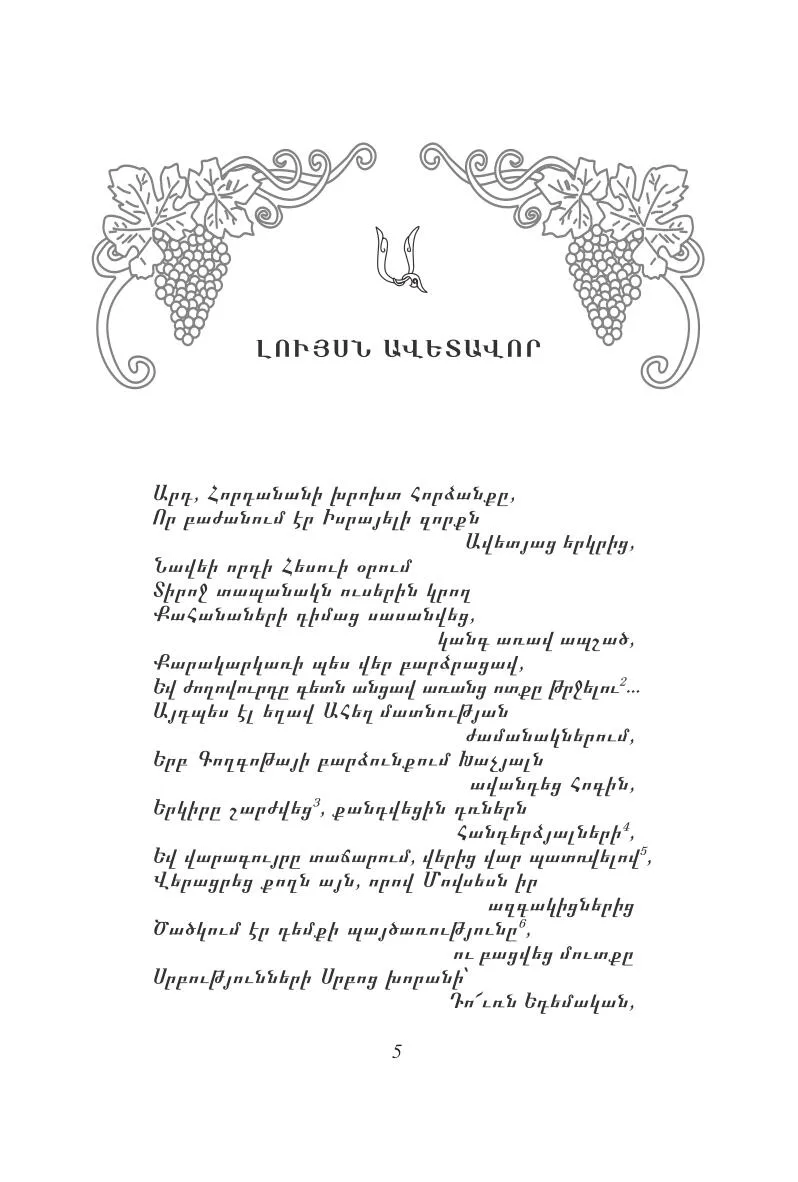 Ա
ԼՈՒՅՍՆ ԱՎԵՏԱՎՈՐ
Արդ, Հորդանանի խրոխտ հորձանքը,
Որ բաժանում էր Իսրայելի զորքն
Ավետյաց երկրից,
Նավեի որդի Հեսուի օրում
Տիրոջ տապանակն ուսերին կրող
Քահանաների դիմաց սասանվեց,
կանգ առավ ապշած,
Քարակարկառի պես վեր բարձրացավ,
Եվ ժողովուրդը գետն անցավ առանց ոտքը թրջելու2...
Այդպես էլ եղավ Ահեղ մատնության
ժամանակներում,
Երբ Գողգոթայի բարձունքում Խաչյալն
ավանդեց հոգին,
Երկիրը շարժվեց3, քանդվեցին դռներն
հանդերձյալների4,
Եվ վարագույրը տաճարում, վերից վար պատռվելով5,
Վերացրեց քողն այն, որով Մովսեսն իր
ազգակիցներից
Ծածկում էր դեմքի պայծառությունը6,
ու բացվեց մուտքը
Սրբությունների Սրբոց խորանի՝
Դո՜ւռն Եդեմական,
5